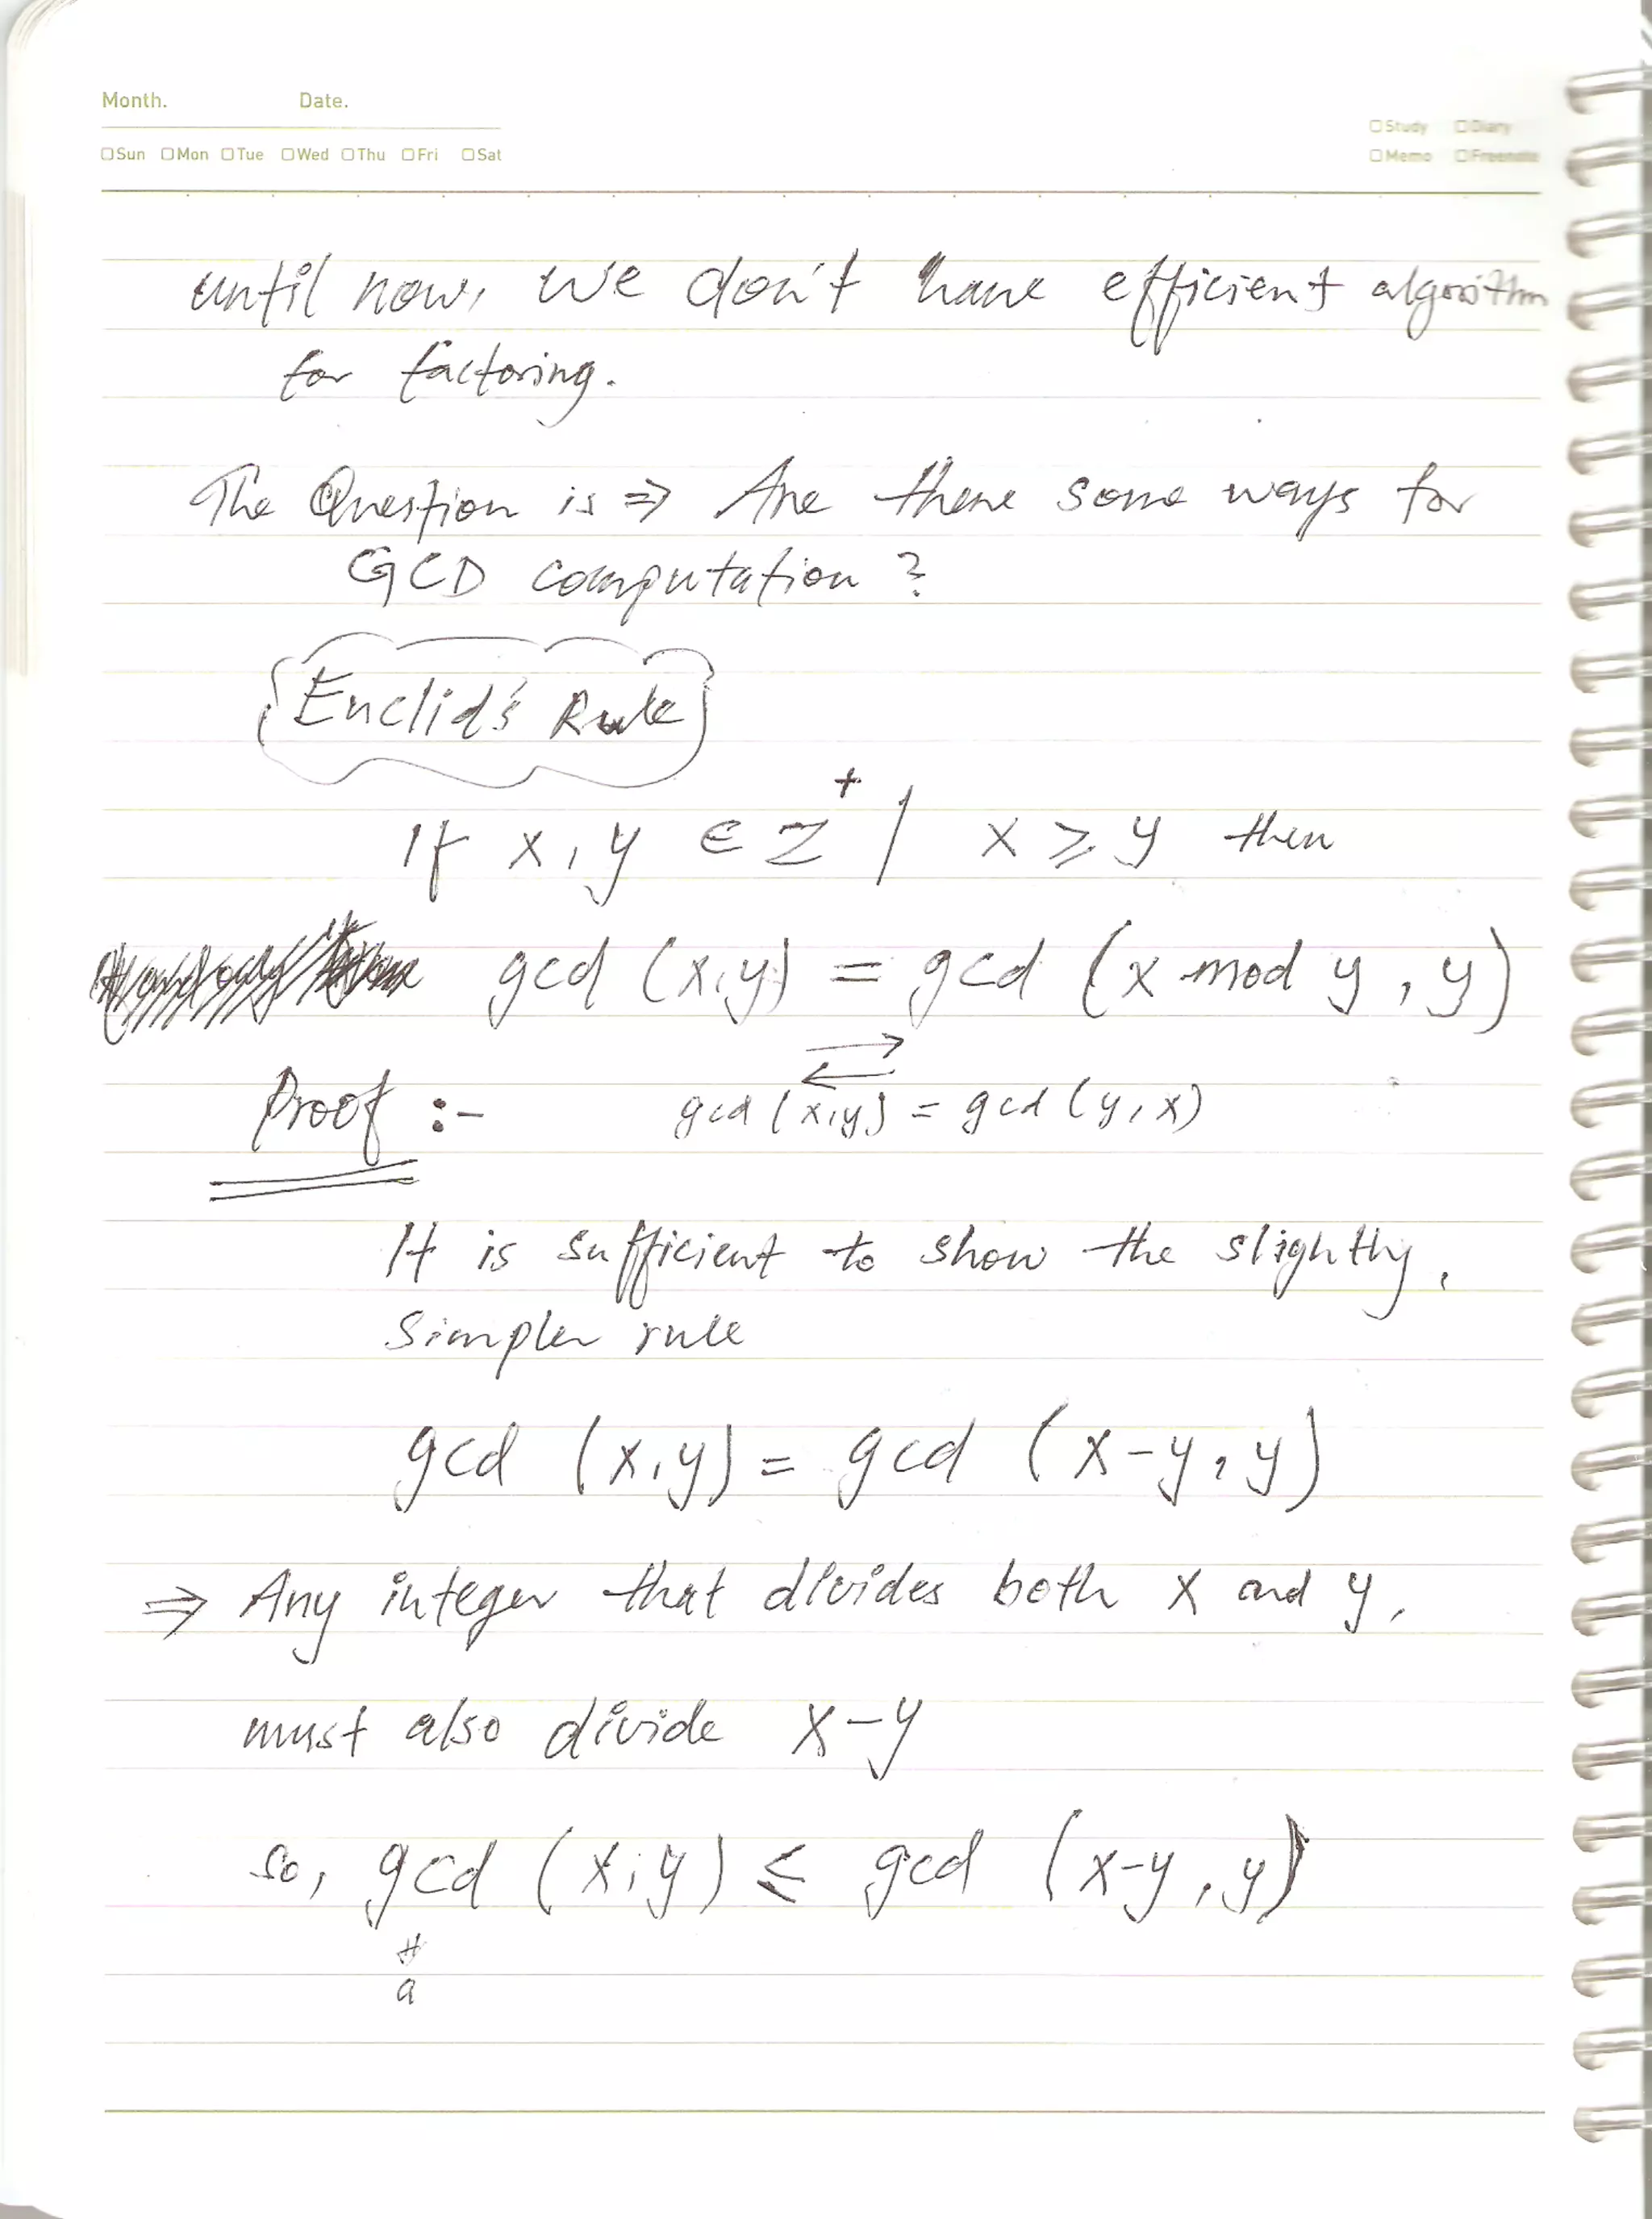 Month. Date.
Sun Mon Tue Wed Thu Fri Sat
Study Diary
Memo Freenote
until now, we don't have efficient algorithm
for factoring.
The Question is ⇒ Are there some ways for
GCD computation ?
Euclid's Rule
If x, y ∈ Z⁺ / x ≥ y then
gcd (x,y) = gcd (x mod y , y)
Proof :- gcd (x,y) = gcd (y, x)
It is sufficient to show the slightly,
Simpler rule
gcd (x,y) = gcd (x-y, y)
⇒ Any integer that divides both x and y,
must also divide x-y
so, gcd (x,y) ≤ gcd (x-y, y)
a